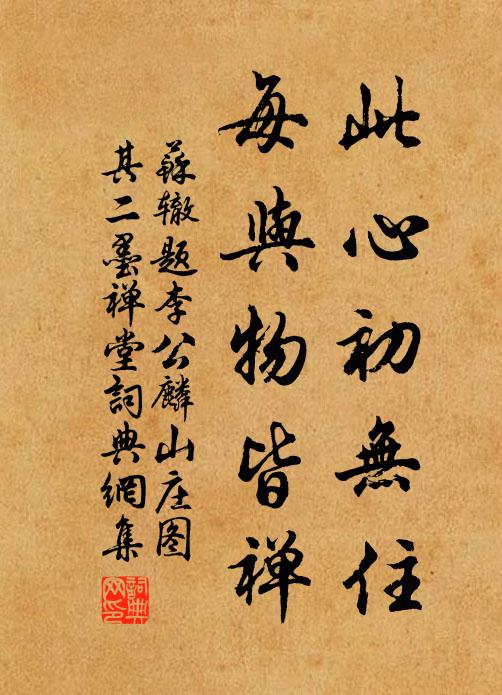 此心初無住
每與物皆禅
蘇辙题李公麟山庄图
其二墨禅堂詞典網集
詞典网印